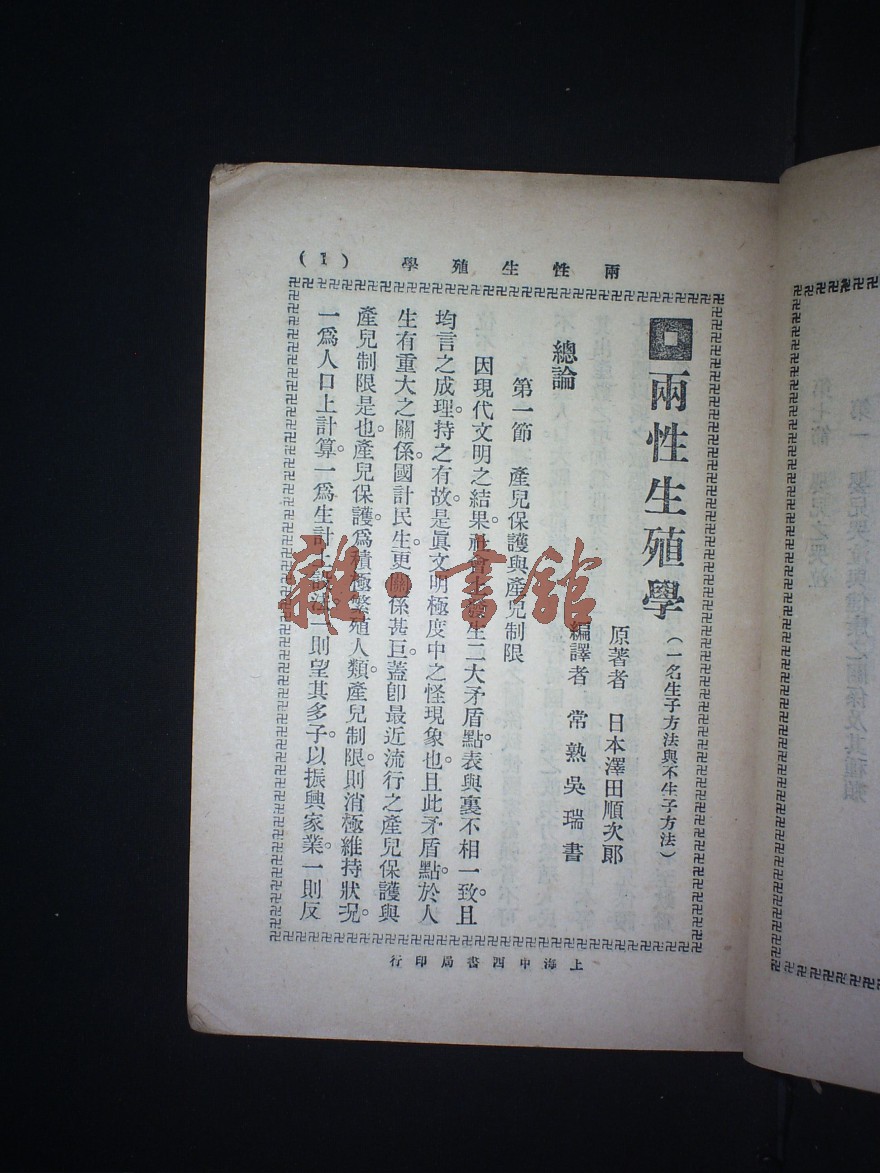 兩性生殖學 (1)
兩性生殖學(一名生子方法與不生子方法)
原著者 日本澤田順次郎
編譯者 常熟吳瑞書
總論
第一節 產兒保護與產兒制限
因現代文明之結果。社會上發生二大矛盾點。表與裏不相一致。且
均言之成理。持之有故。是眞文明極度中之怪現象也。且此矛盾點。於人
生有重大之關係。國計民生。更關係甚巨。蓋卽最近流行之產兒保護與
產兒制限是也。產兒保護。爲積極繁殖人類。產兒制限。則消極維持狀况。
一爲人口上計算。一爲生計上設法。一則望其多子。以振興家業。一則反
上海中西書局印行
雜·書館